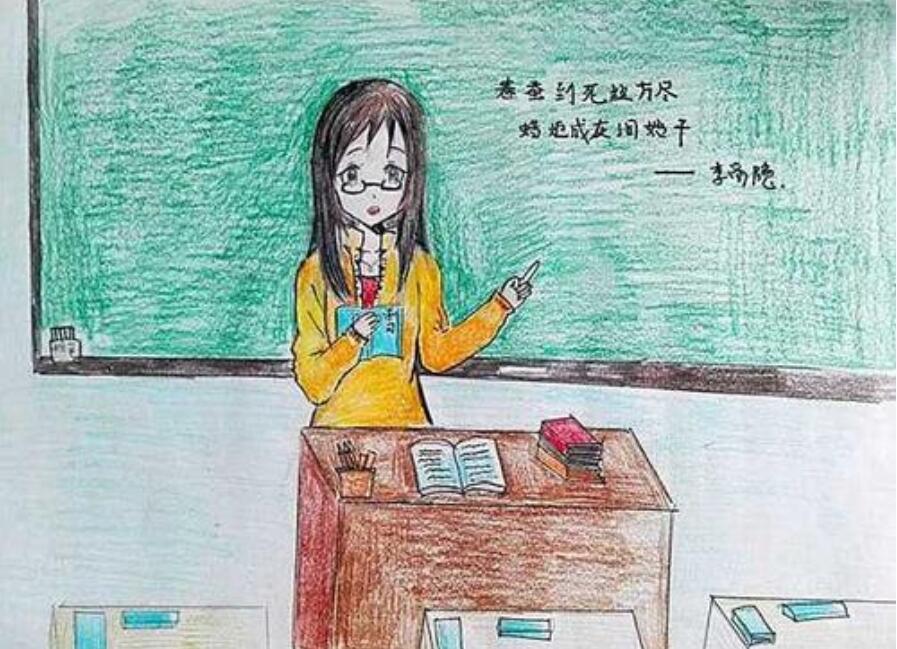 春蚕到死丝方尽
蜡炬成灰泪始干
—— 李商隐.